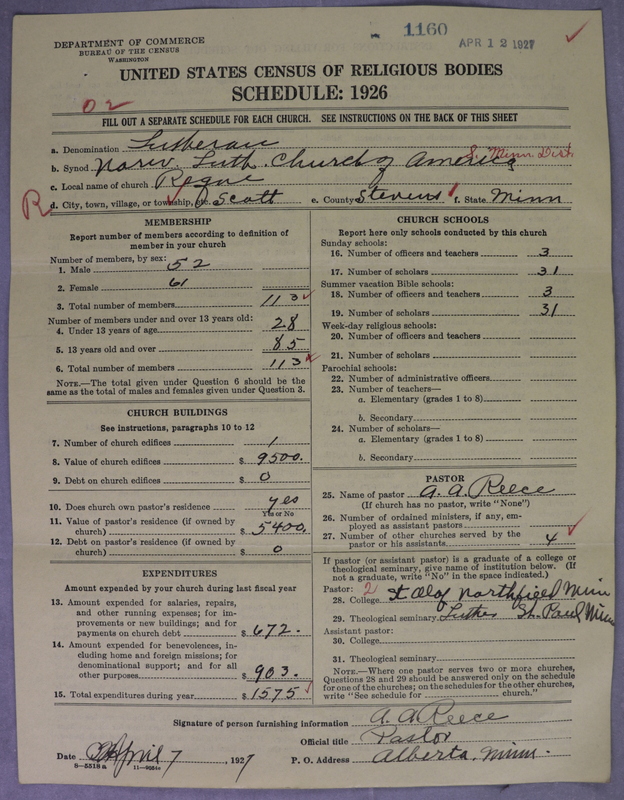 1160
APR 12 1927
DEPARTMENT OF COMMERCE
BUREAU OF THE CENSUS
WASHINGTON
UNITED STATES CENSUS OF RELIGIOUS BODIES
SCHEDULE: 1926
02
FILL OUT A SEPARATE SCHEDULE FOR EACH CHURCH. SEE INSTRUCTIONS ON THE BACK OF THIS SHEET
a. Denomination Lutheran
b. Synod Norw. Luth. Church of America S. Minn. Dist.
c. Local name of church Rogne
R d. City, town, village, or township, etc. Scott e. County Stevens f. State Minn
MEMBERSHIP
Report number of members according to definition of member in your church
Number of members, by sex:
1. Male 52
2. Female 61
3. Total number of members 113
Number of members under and over 13 years old:
4. Under 13 years of age 28
5. 13 years old and over 85
6. Total number of members 113
NOTE.—The total given under Question 6 should be the
same as the total of males and females given under Question 3.
CHURCH BUILDINGS
See instructions, paragraphs 10 to 12
7. Number of church edifices 1
8. Value of church edifices $ 9500.
9. Debt on church edifices $ 0
10. Does church own pastor's residence yes
Yes or No
11. Value of pastor's residence (if owned by
church) $ 5400.
12. Debt on pastor's residence (if owned by
church) $ 0
EXPENDITURES
Amount expended by your church during last fiscal year
13. Amount expended for salaries, repairs,
and other running expenses; for im-
provements or new buildings; and for
payments on church debt $ 672.
14. Amount expended for benevolences, in-
cluding home and foreign missions; for
denominational support; and for all
other purposes $ 903.
15. Total expenditures during year $ 1575
CHURCH SCHOOLS
Report here only schools conducted by this church
Sunday schools:
16. Number of officers and teachers 3
17. Number of scholars 31
Summer vacation Bible schools:
18. Number of officers and teachers 3
19. Number of scholars 31
Week-day religious schools:
20. Number of officers and teachers
21. Number of scholars
Parochial schools:
22. Number of administrative officers
23. Number of teachers—
a. Elementary (grades 1 to 8)
b. Secondary
24. Number of scholars—
a. Elementary (grades 1 to 8)
b. Secondary
PASTOR
25. Name of pastor A. A. Reece
(If church has no pastor, write "None")
26. Number of ordained ministers, if any, em-
ployed as assistant pastors
27. Number of other churches served by the
pastor or his assistants 4
If pastor (or assistant pastor) is a graduate of a college or
theological seminary, give name of institution below. (If
not a graduate, write "No" in the space indicated.)
Pastor: 2
28. College St Olaf Northfield Minn
29. Theological seminary Luther St. Paul Minn
Assistant pastor:
30. College
31. Theological seminary
NOTE.—Where one pastor serves two or more churches,
Questions 28 and 29 should be answered only on the schedule
for one of the churches; on the schedules for the other churches,
write "See schedule for church."
Signature of person furnishing information A. A. Reece
Official title Pastor
Date April 7, 1927 P. O. Address Alberta, Minn.
8-5518 a